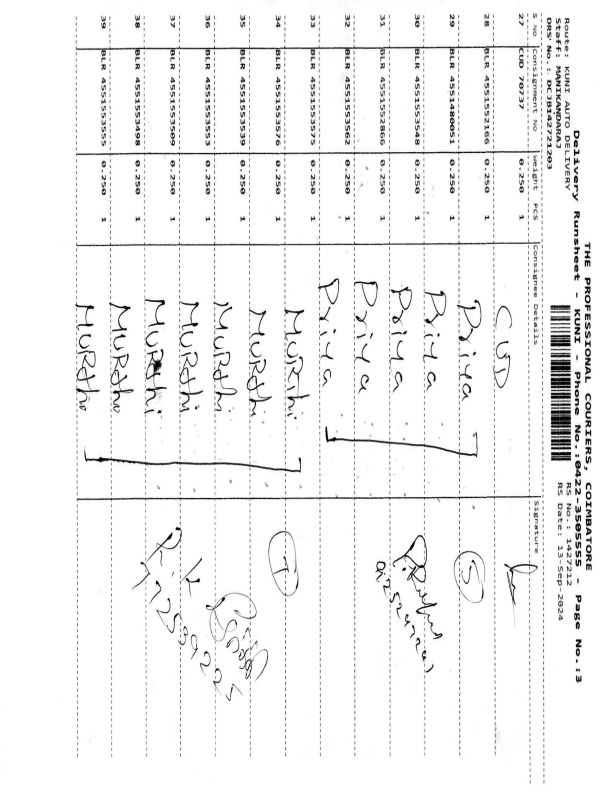 THE PROFESSIONAL COURIERS, COIMBATORE
Delivery Runsheet - KUNI - Phone No.:0422-3505555 - Page No.:3
Route: KUNI AUTO DELIVERY RS No.: 1427212
Staff: MANIKANDARAJ RS Date: 13-Sep-2024
DRS' No.: DCJB142721203
S No Consignment No Weight PCS Consignee Details Signature
27 CUD 70737 0.250 1 CUD
28 BLR 4551552166 0.250 1 Priya 5
29 BLR 4551480051 0.250 1 Priya
30 BLR 4551553548 0.250 1 Priya
31 BLR 4551552866 0.250 1 Priya
32 BLR 4551553562 0.250 1 Priya
33 BLR 4551553575 0.250 1 MURthi
34 BLR 4551553576 0.250 1 MURthi 7
35 BLR 4551553539 0.250 1 MURthi
36 BLR 4551553553 0.250 1 MURthi
37 BLR 4551553509 0.250 1 MURthi
38 BLR 4551553498 0.250 1 MURthi
39 BLR 4551553555 0.250 1 MURthi